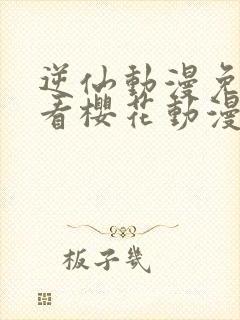 逆仙動漫免
看櫻花動漫
板子幾